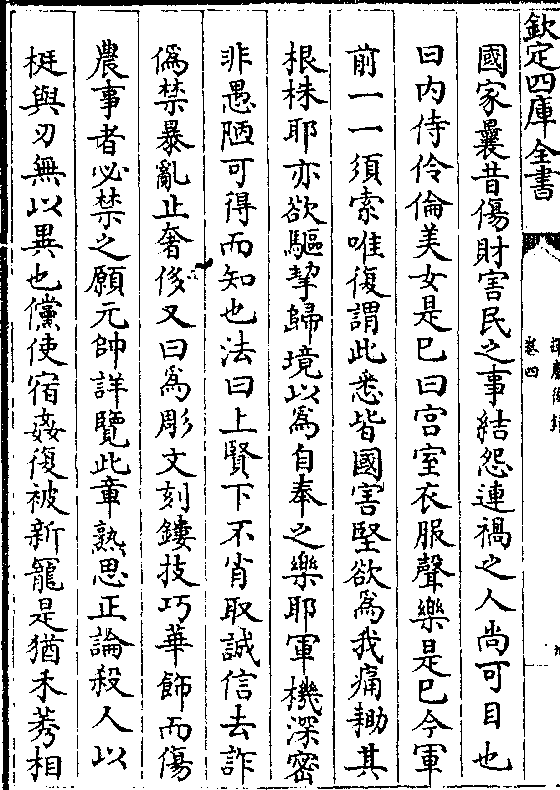 欽定四庫全書
卷四
國家曩昔傷財害民之事結怨連禍之人尚可目也
曰内侍伶倫美女是已曰宫室衣服聲樂是已今軍
前一一須索唯復謂此悉皆國害堅欲為我痛耡其
根株耶亦欲驅挈歸境以為自奉之樂耶軍機深密
非愚陋可得而知也法曰上賢下不肖取誠信去詐
偽禁暴亂止奢侈又曰為彫文刻鏤技巧華飾而傷
農事者必禁之願元帥詳覽此章熟思正論殺人以
梃與刃無以異也儻使宿姦復被新寵是猶禾莠相